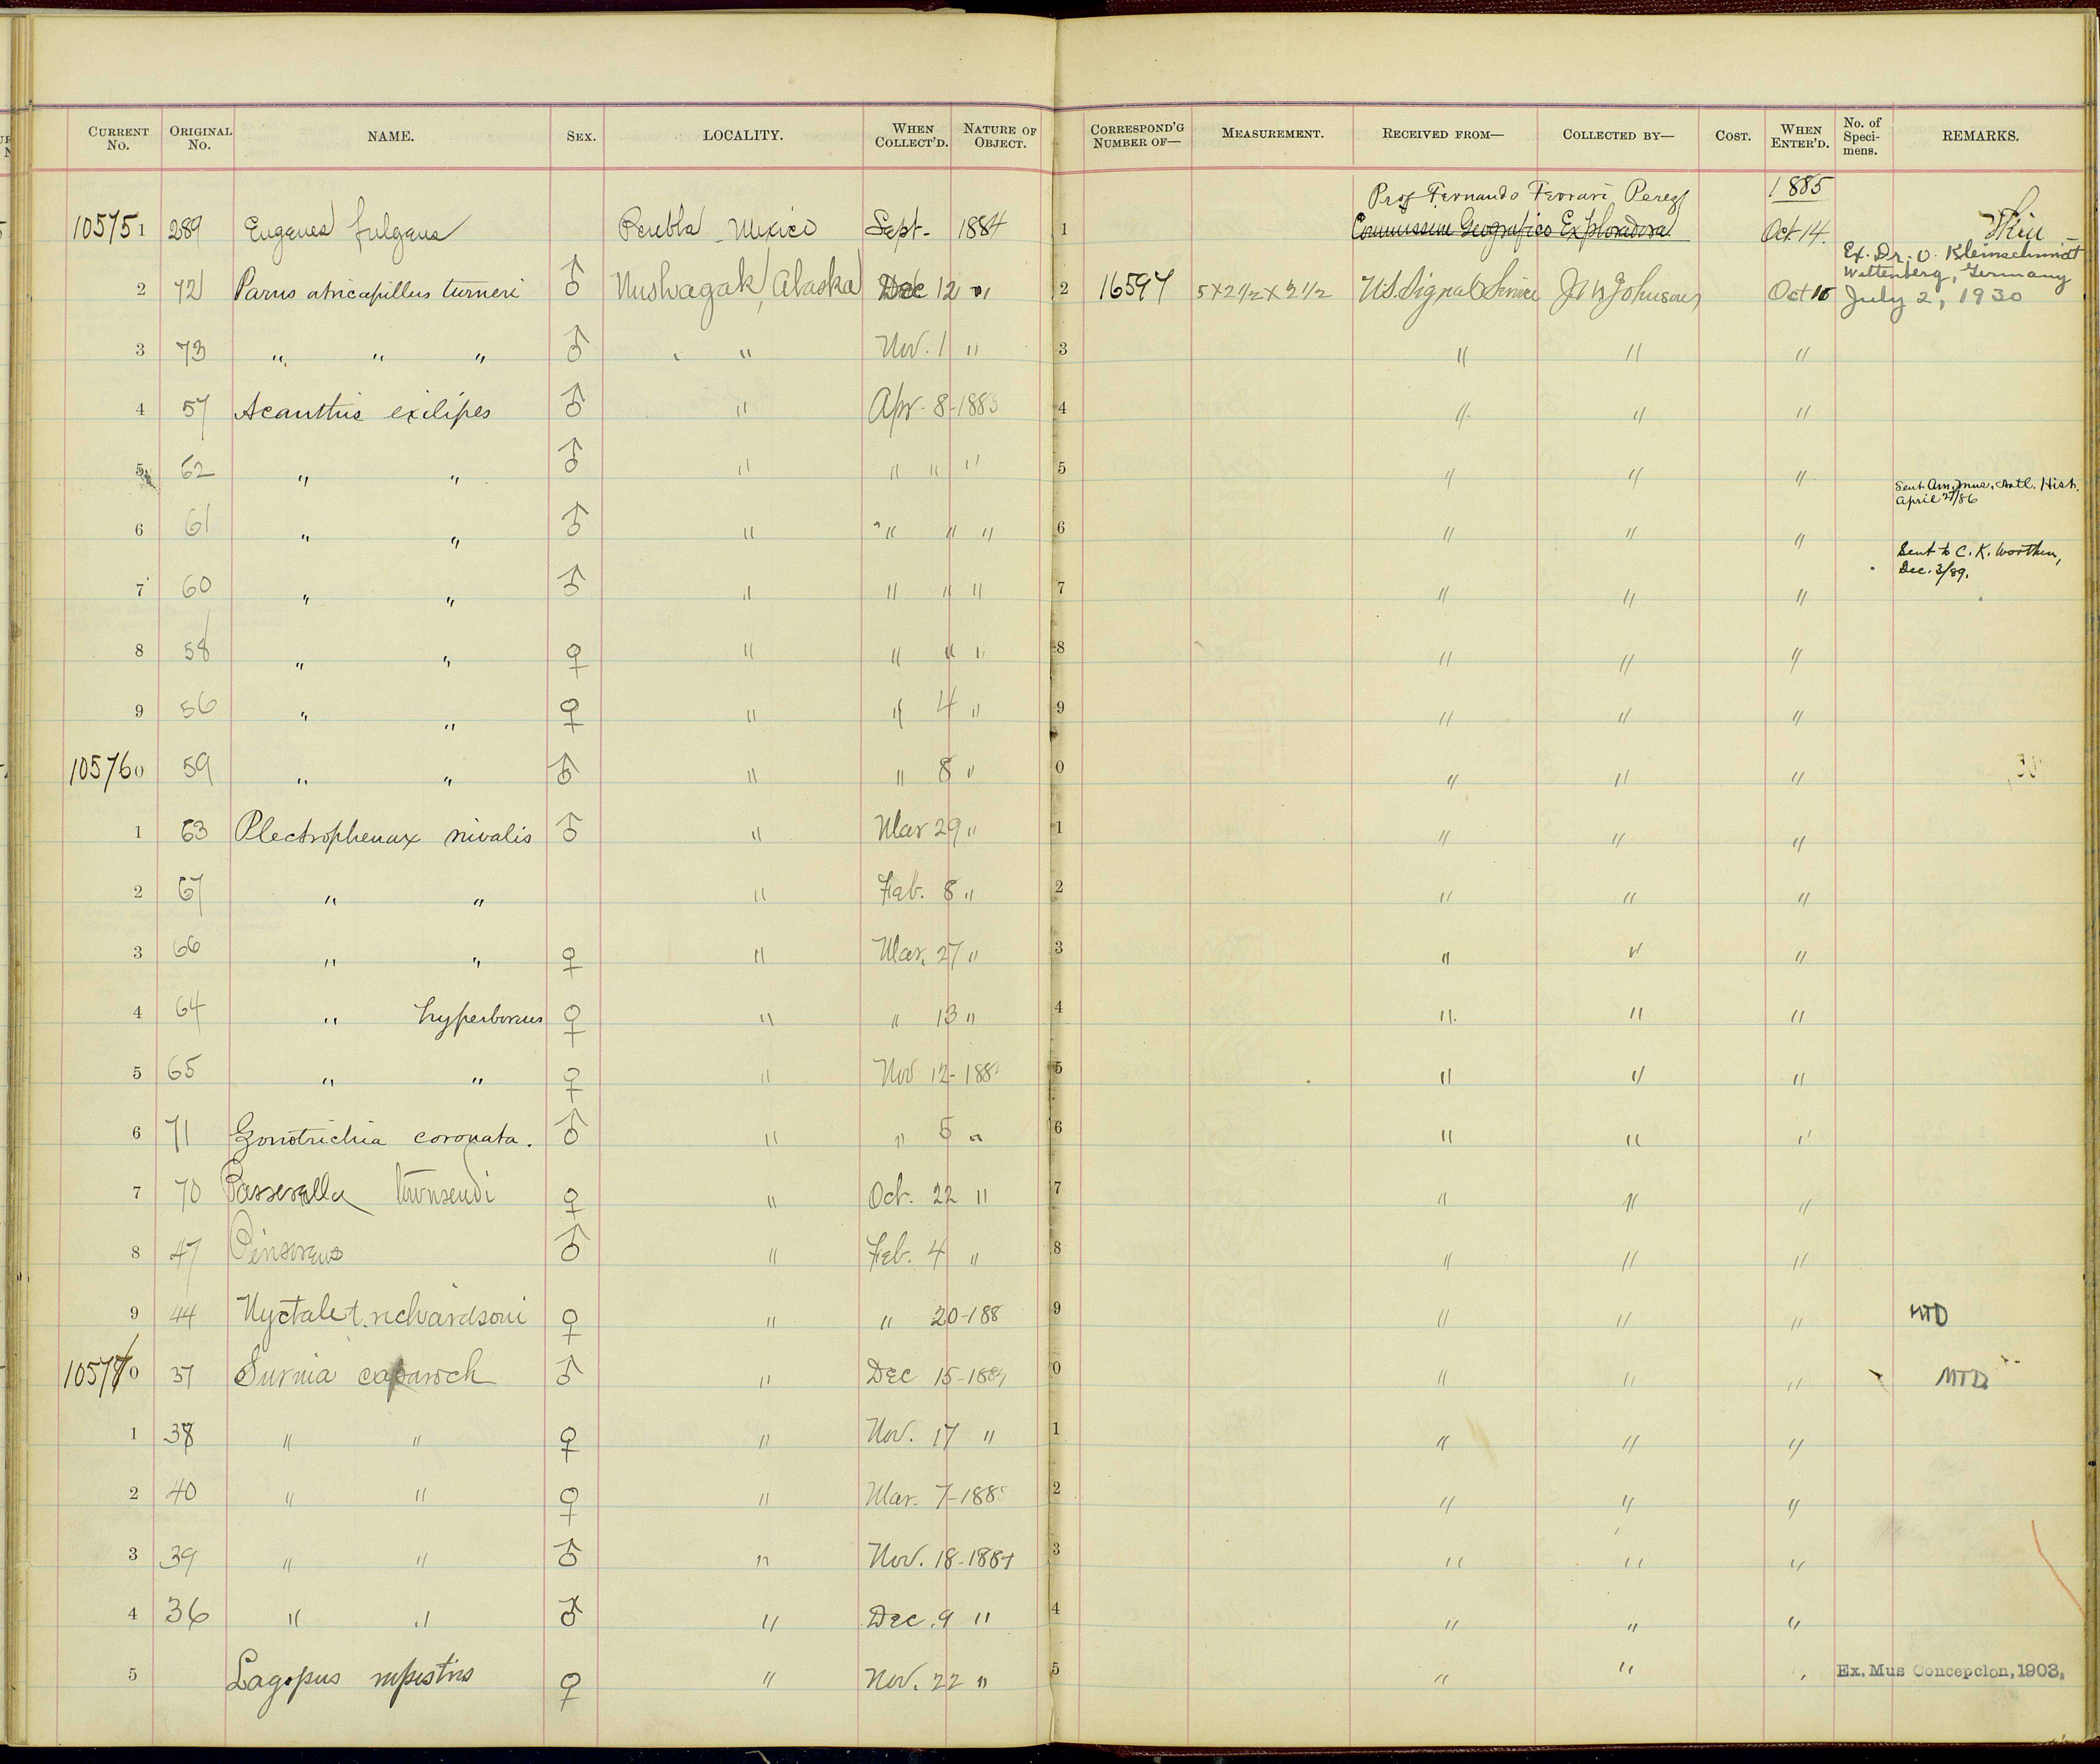 CURRENT No. ORIGINAL No. NAME. SEX. LOCALITY. WHEN COLLECT'D. NATURE OF OBJECT. CORRESPOND'G NUMBER OF— MEASUREMENT. RECEIVED FROM— COLLECTED BY— COST. WHEN ENTER'D. No. of Speci-mens. REMARKS.
Prof Fernando Ferrari Perez 1885
105751 289 Eugenes fulgens Puebla Mexico Sept- 1884 1 Commission Geografico Exploradora Oct 14. Skin
Ex. Dr. O. Kleinschmidt
Wittenberg, Germany
2 72 Parus atricapillus turneri ♂ Nushagak, Alaska Dec 12 " 2 16597 5 x 2 1/2 x 2 1/2 U.S. Signal Service J W Johnson Oct 15 July 2, 1930
3 73 " " " ♂ " " Nov. 1 " 3 " " "
4 57 Acanthis exilipes ♂ " Apr - 8 - 1885 4 " " "
5 62 " " ♂ " " " " 5 " " "
Sent Am. Mus. Natl. Hist.
April 27/86
6 61 " " ♂ " " " " 6 " " "
Sent to C. K. Worthen,
Dec. 3/89.
7 60 " " ♂ " " " " 7 " " "
8 58 " " ♀ " " " " 8 " " "
9 56 " " ♀ " " 4 " 9 " " "
105760 59 " " ♂ " " 8 " 0 " " "
1 63 Plectrophenax nivalis ♂ " Mar 29 " 1 " " "
2 67 " " " Feb. 8 " 2 " " "
3 66 " " ♀ " Mar. 27 " 3 " " "
4 64 " hyperboreus ♀ " " 13 " 4 " " "
5 65 " " ♀ " Nov 12 - 188 5 " " "
6 71 Zonotrichia coronata. ♂ " " 5 " 6 " " "
7 70 Passerella townsendi ♀ " Oct. 22 " 7 " " "
8 47 ♂ " Feb. 4 " 8 " " "
9 44 Nyctale t. richardsoni ♀ " " 20 - 188 9 " " " MTD
105770 37 Surnia caparoch ♂ " Dec 15 - 1884 0 " " " MTD
1 38 " " ♀ " Nov. 17 " 1 " " "
2 40 " " ♀ " Mar. 7 - 1885 2 " " "
3 39 " " ♂ " Nov. 18 - 1884 3 " " "
4 36 " " ♂ " Dec. 9 " 4 " " "
5 Lagopus rupestris ♀ " Nov. 22 " 5 " " " Ex. Mus Concepcion, 1903.